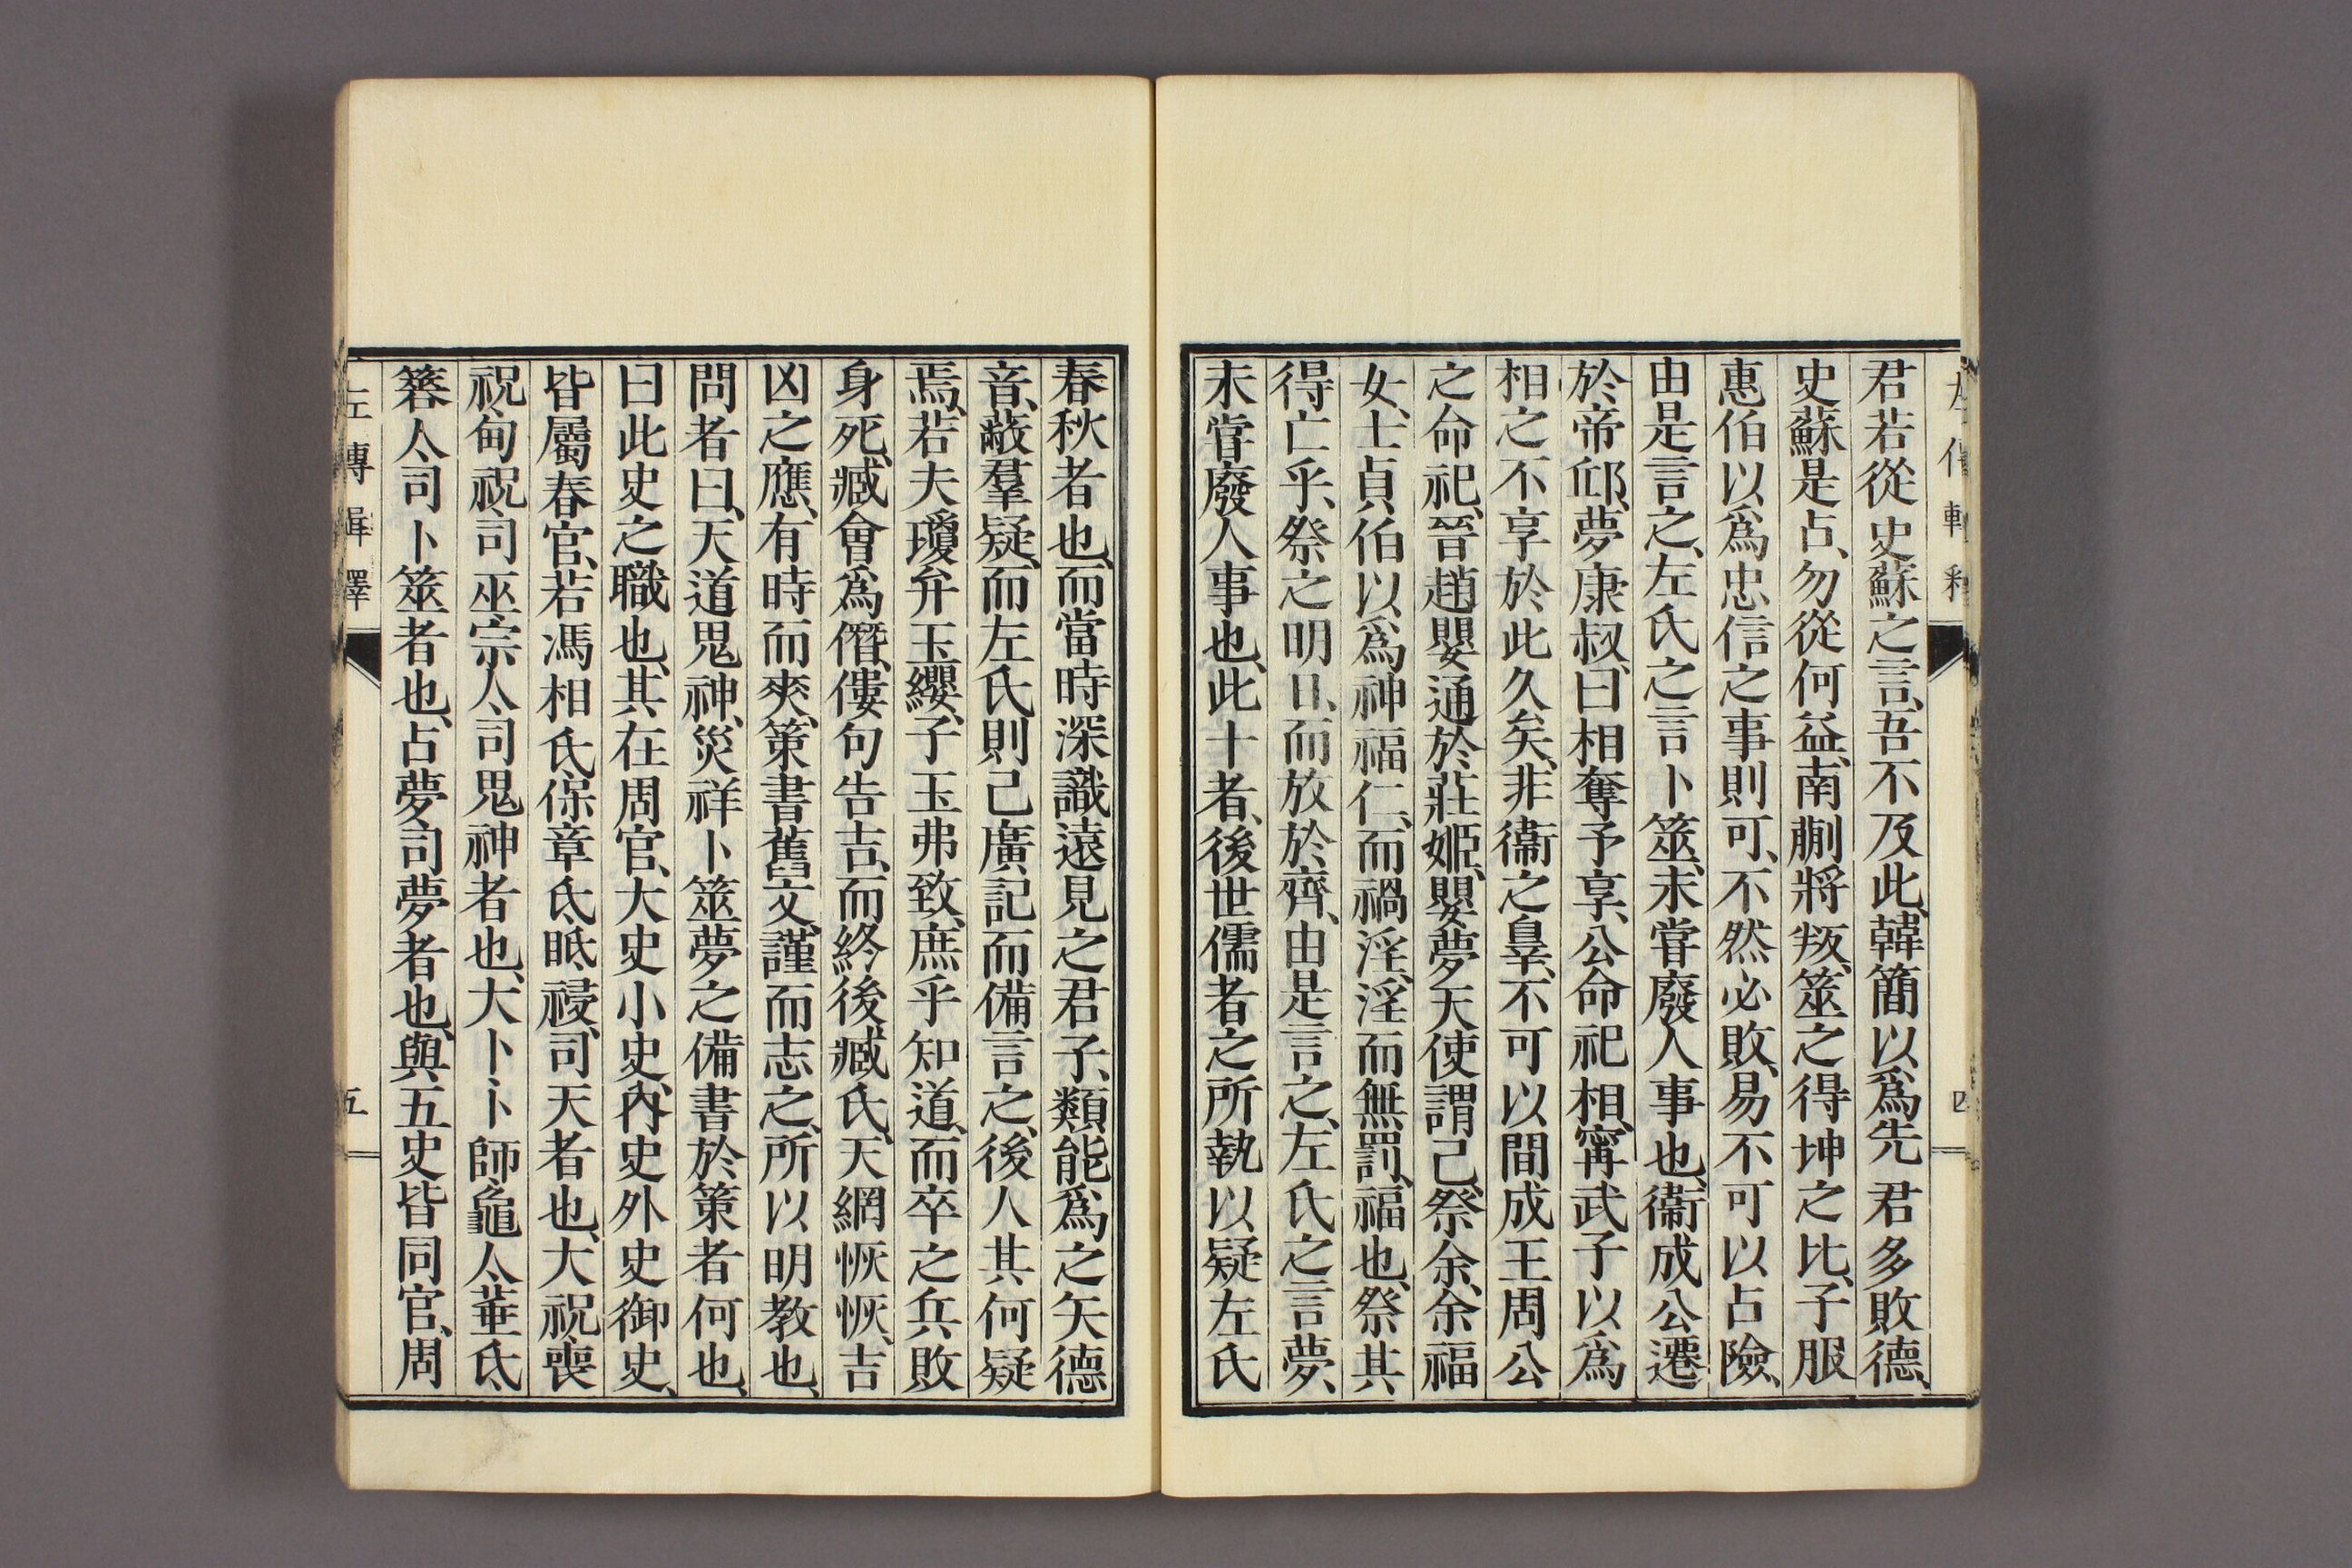 君若從史蘇之言、吾不及此、韓簡以爲先君多敗德、
史蘇是占、勿從何益、南蒯將叛、筮之得坤之比、子服
惠伯以爲忠信之事則可、不然必敗、易不可以占險、
由是言之、左氏之言卜筮、未嘗廢人事也、衞成公遷
於帝邱、夢康叔、曰相奪予享、公命祀相、甯武子以爲
相之不享於此久矣、非衞之辠、不可以間成王周公
之命祀、晉趙嬰通於莊姬、嬰夢天使謂己、祭余、余福
女、士貞伯以爲神福仁、而禍淫、淫而無罰、福也、祭其
得亡乎、祭之明日、而放於齊、由是言之、左氏之言夢、
未嘗廢人事也、此十者、後世儒者之所執以疑左氏
四
春秋者也、而當時深識遠見之君子、類能爲之矢德
音、蔽羣疑、而左氏則己廣記而備言之、後人其何疑
焉、若夫瓊弁玉纓、子玉弗致、庶乎知道、而卒之兵敗
身死、臧會爲僭、僂句告吉、而終後臧氏、天網恢恢、吉
凶之應、有時而爽、策書舊文、謹而志之、所以明教也、
問者曰、天道鬼神、災祥卜筮夢之備書於策者何也、
曰此史之職也、其在周官、大史小史、內史外史御史、
皆屬春官、若馮相氏、保章氏、眡祲、司天者也、大祝喪
祝、甸祝、司巫宗人、司鬼神者也、大卜卜師、龜人、菙氏
簭人、司卜筮者也、占夢司夢者也、與五史皆同官、周
五